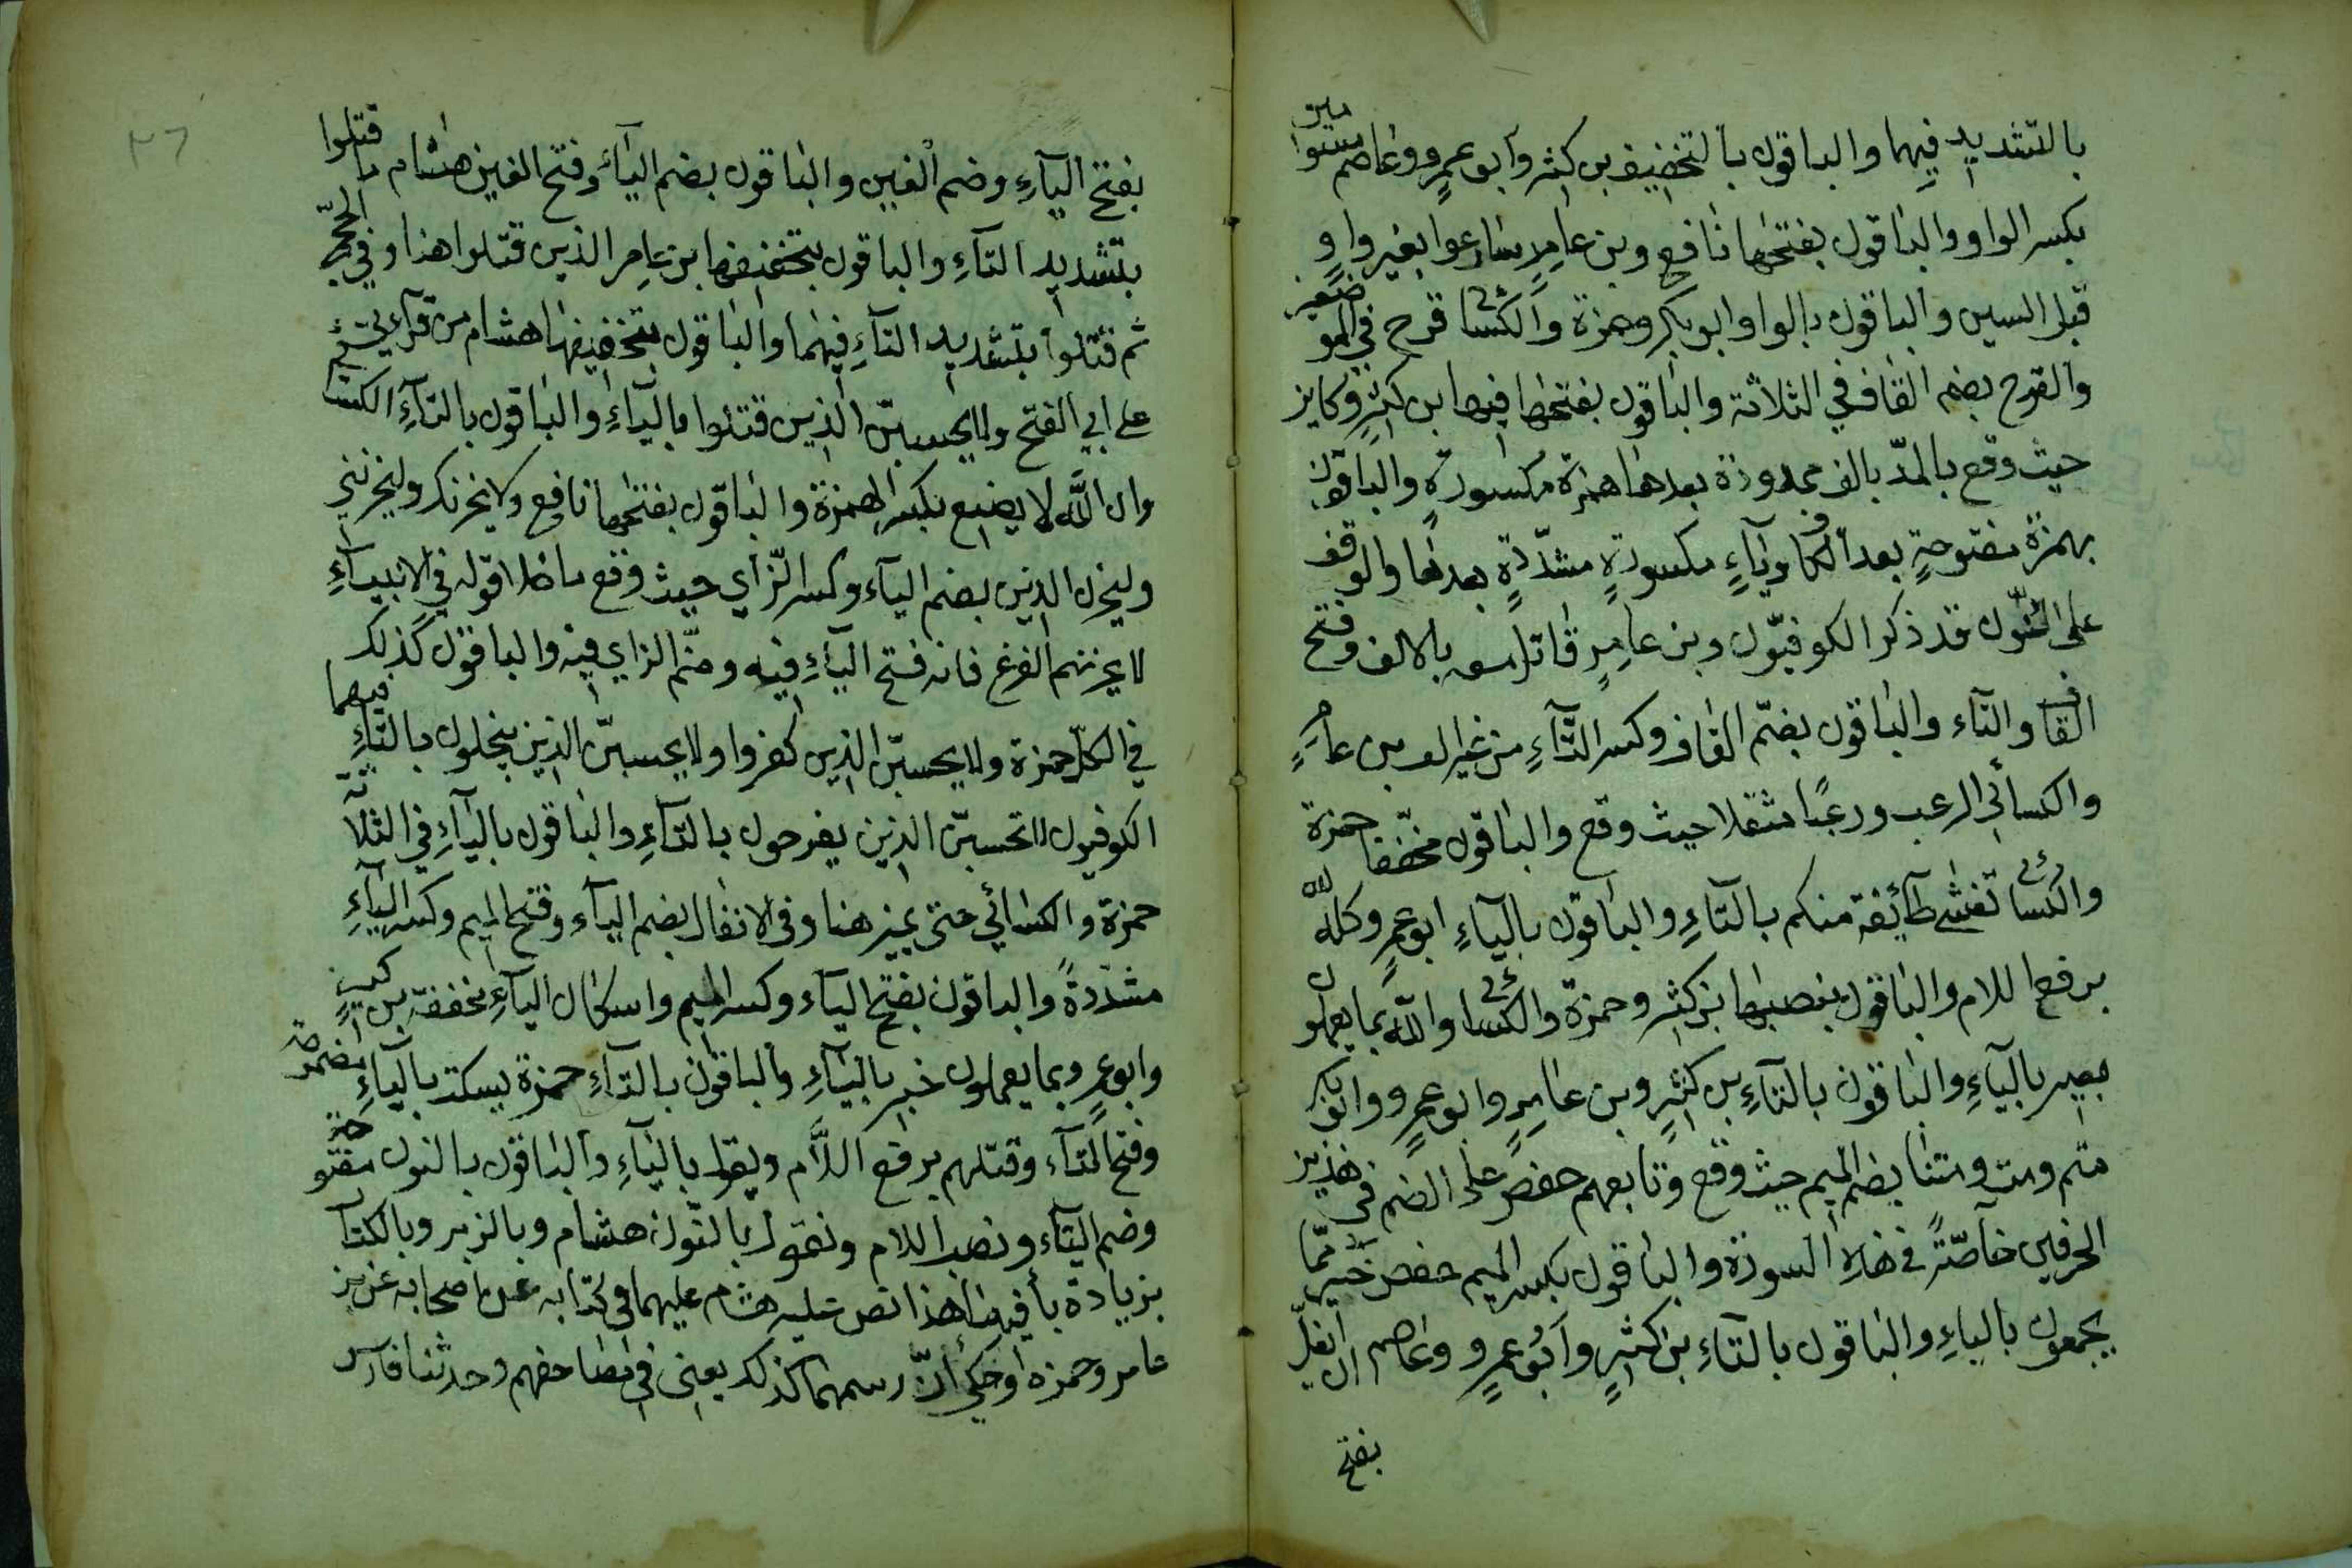 بالتشديد فيهما والباقون بالتخفيف بن كثير وأبو عمرٍو وعاصم مسومين
بكسر الواو والباقون بفتحها نافع وبن عامرٍ سارعوا بغير واوٍ
قبل السين والباقون بالواو ابو بكر وحمزة والكسائى قرح في الموضعين
والقرح بضم القاف في الثلاثة والباقون بفتحها فيها ابن كثيرٍ وكاين
حيث وقع بالمدّ بالف ممدودة بعدها همزة مكسورةٍ والباقون
بهمزة مفتوحةٍ بعد الكاف وياءٍ مكسورةٍ مشدّدةٍ بعدها والوقف
على النّون قد ذكر الكوفيّون وبن عامرٍ قاتل معه بالالف وفتح
القاف والتاء والباقون بضمّ القاف وكسر التّآءِ من غير الف بن عامرٍ
والكسائي الرعب ورعبًا مثقلا حيث وقع والباقون مخفّفا حمزة
والكسائى تغشى طآئفة منكم بالتاءِ والباقون بالياءِ ابو عمرٍو كله لله
برفع اللام والباقون بنصبها بن كثير وحمزة والكسائى والله بما يعملون
بصير بالياءِ والباقون بالتاءِ بن كثيرٍ وبن عامرٍ وابو عمرٍو وابو بكر
متم ومت ومتنا بضم الميم حيث وقع وتابعهم حفص على الضم في هذين
الحرفين خاصّةً في هذه السورة والباقون بكسر الميم حفص خير ممّا
يجمعون بالياءِ والباقون بالتاءِ بن كثيرٍ وأبو عمرٍو وعاصم ان يغلّ
بفتح
بفتح اليآءِ وضم الغين والباقون بضم اليآءِ وفتح الغين هشام ما قتلوا
بتشديد التآءِ والباقون بتخفيفها بن عامر الذين قتلوا هنا وفي الحجّ
ثم قتلوا بتشديد التآءِ فيهما والباقون بتخفيفها هشام من قرآءتي
على ابي الفتح ولا يحسبنّ الذين قتلوا بالياءِ والباقون بالتآءِ الكسائي
وان الله لا يضيع بكسر الهمزة والباقون بفتحها نافع ولا يحزنك وليحزنني
وليحزن الذين بضم اليآء وكسر الزّاي حيث وقع ما خلا قوله في الانبيآءِ
لا يحزنهم الفزع فانه فتح اليآءِ فيه وضمّ الزاي فيه والباقون كذلك
في الكلّ حمزة ولا يحسبنّ الذين كفروا ولا يحسبنّ الذين يبخلون بالتّاءِ فيهما
الكوفيون لا تحسبنّ الذين يفرحون بالتآءِ والباقون باليآءِ في الثلاثة
حمزة والكسائي حتى يميز هنا وفى الانفال بضم اليآء وفتح الميم وكسر اليآءِ
مشدّدةً والباقون بفتح اليآء وكسر الميم واسكان اليآءِ مخففة بن كثيرٍ
وابو عمرٍو بما يعملون خبير باليآءِ والباقون بالتاءِ حمزة سيكتب بالياءِ مضمومة
وفتح التاء وقتلهم برفع اللاَّم ويقول بالياءِ والباقون بالنون مفتوحة
وضم التاء ونصب اللام ونقول بالنّون هشام وبالزبر وبالكتاب
بزيادة بآء فيهما هذا نص عليه هشام عليهما في كتابه عن اصحابه عن بن
عامر وحمزه وحكى أنّ رسمهما كذلك يعنى في مصاحفهم وحدثنا فارس